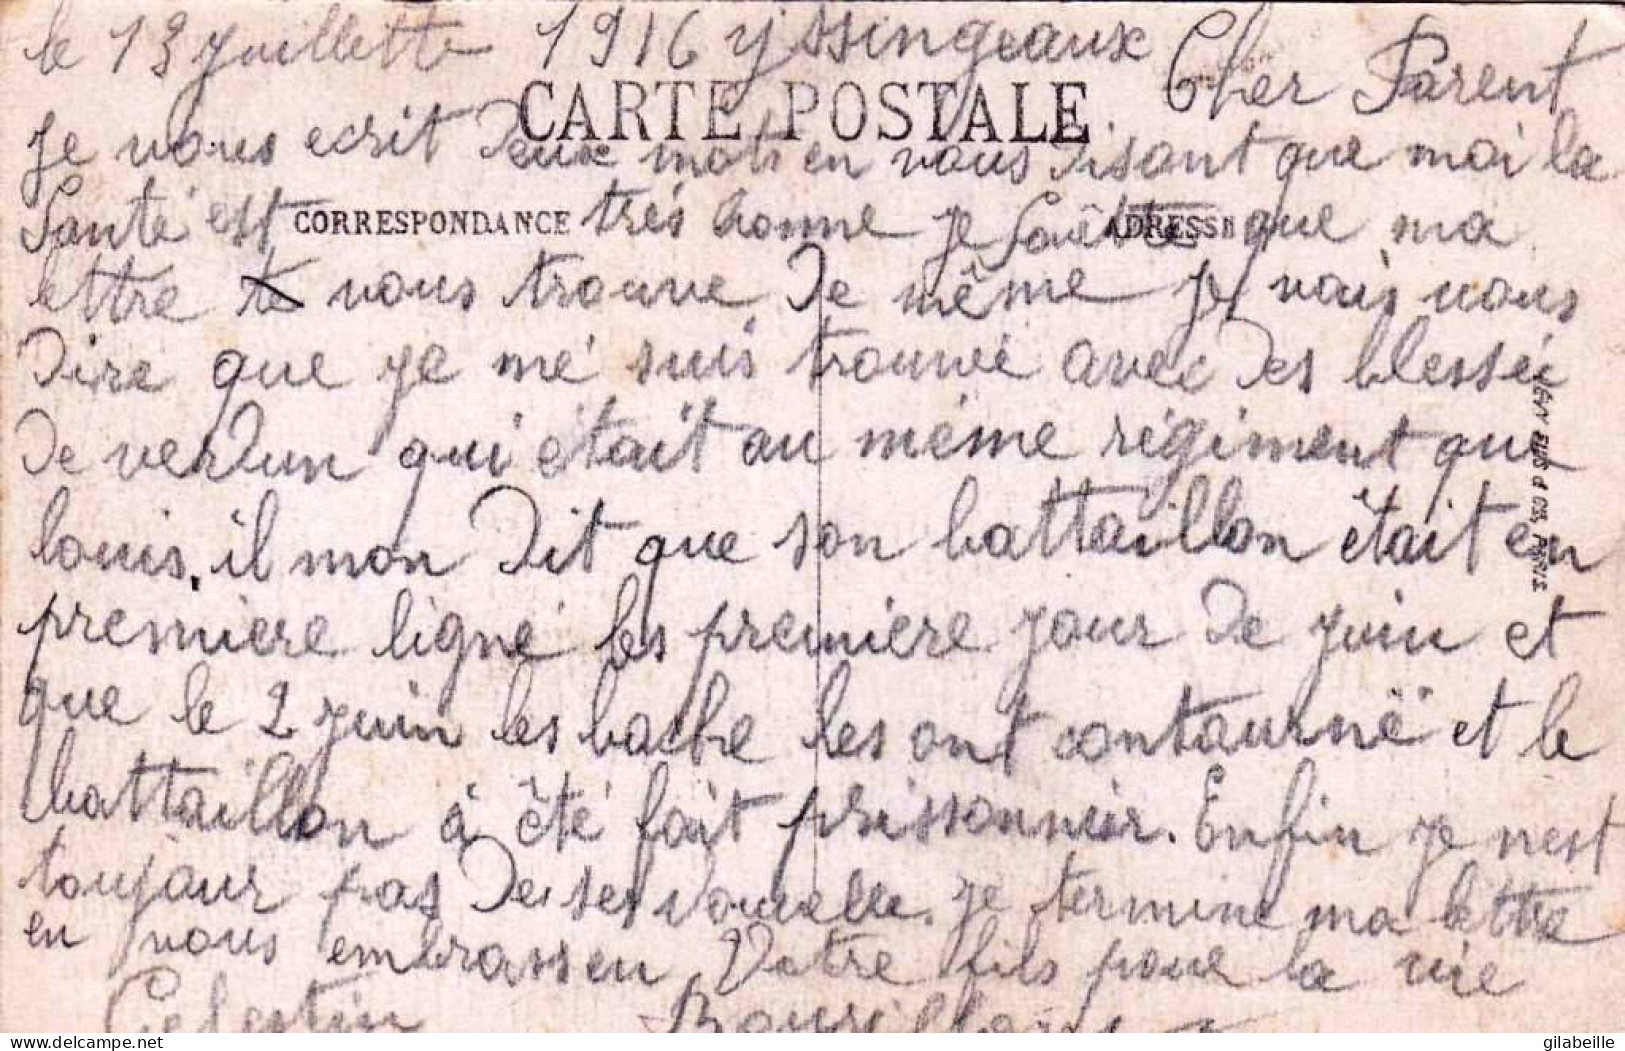 le 13 juillette 1916 yssingeaux Cher Parent
CARTE POSTALE
Je vous ecrit Deux mots en vous Disant que moi la
Santé est très bonne je souëtte que ma
CORRESPONDANCE ADRESSE
lettre te vous trouve De même je vais vous
Dire que je mé suis trouvé avec Des blessé
De verdun qui était au même régiment que
louis, il mon Dit que son battaillon était en
premiere ligne les premiere jour De juin et
que le 2 juin les boche les ont contourné et le
battaillon à êté fait prissonnier. Enfin je nest
toujour pas De ses nouvelle. je termine ma lettre
en vous embrassen Votre fils pour la vie
Celestin
JEAN BUIS & CIE PARIS
gilabeille